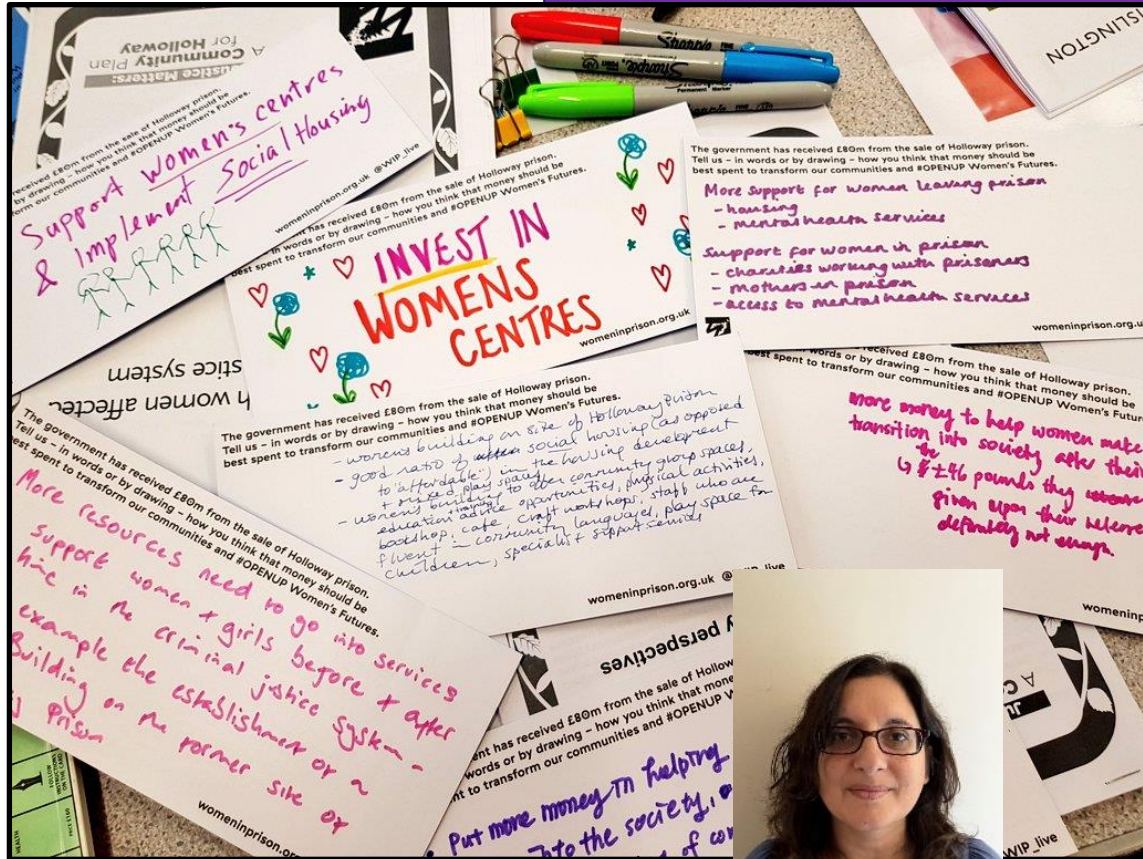 Justice Matters:
A Community Plan
for Holloway
received £80m from the sale of Holloway prison.
by drawing – how you think that money should be
our communities and #OPENUP Women's Futures.
Support women's centres
& implement Social Housing
womeninprison.org.uk @WIP_live
has received £80m from the sale of Holloway prison.
words or by drawing – how you think that money should be
best spent to transform our communities and #OPENUP Women's Futures.
INVEST IN
WOMENS
CENTRES
womeninprison.org.uk
The government has received £80m from the sale of Holloway prison.
Tell us – in words or by drawing – how you think that money should be
best spent to transform our communities and #OPENUP Women's Futures.
More support for women leaving prison
- housing
- mental health services
Support for women in prison
- charities working with prisoners
- mothers in prison
- access to mental health services
womeninprison.org.uk
Sharpie
Permanent Marker
ISLINGTON
women affected
stice system
The government has received £80m from the sale of Holloway prison.
Tell us – in words or by drawing – how you think that money should be
best spent to transform our communities and #OPENUP Women's Futures.
- womens building on site of Holloway Prison
- good ratio of social housing (as opposed
to "affordable") in the housing development
+ mixed play spaces
- womens building to offer community group spaces,
education training advice opportunities, physical activities,
bookshop, cafe, craft workshops, staff who are
fluent in community languages, play space for
children, specialist support services
womeninprison.org.uk @WIP_live
received £80m from the sale of Holloway prison.
words or by drawing – how you think that money should be
best spent to transform our communities and #OPENUP Women's Futures.
More money to help women make
transition into society after their
the £46 pounds they
given upon their
definitely not enough.
The government has received £80m from the sale of Holloway prison.
Tell us – in words or by drawing – how you think that money should be
best spent to transform our communities and #OPENUP Women's Futures.
More resources need to go into services
support women + girls before + after
time in the criminal justice system -
example the establishment of a
Building on the former site of
Prison
womeninprison.org
perspectives
has received £80m from the sale of Holloway
words or by drawing – how you think that
to transform our communities and #OPENUP
Put more money in helping
into the society,
of
WIP_live
FOLLOW
INSTRUCTIONS
ON THE CARD
HEALTH
PRICE £160